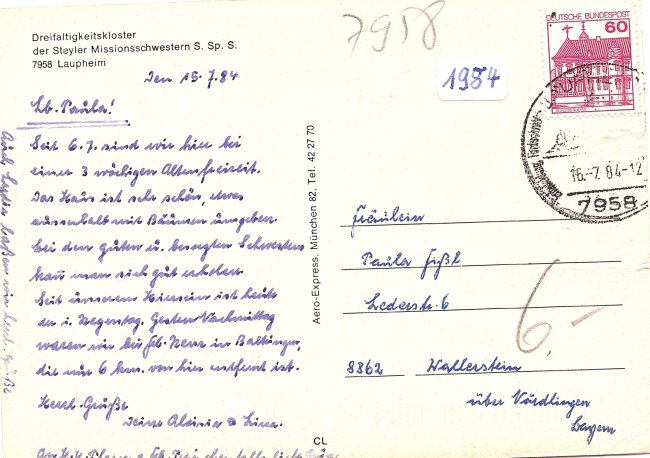 Dreifaltigkeitskloster
der Steyler Missionsschwestern S. Sp. S.
7958 Laupheim
7958
1984
DEUTSCHE BUNDESPOST
60
16.-7.84-12
7958
Den 15.7.84
Lb. Paula!
Seit 6.7. sind wir hier bei
einer 3 wöchigen Altenfreizeit.
Das Haus ist sehr schön, etwas
ausserhalb mit Bäumen umgeben.
bei den guten u. besorgten Schwestern
kann man sich gut erholen.
Seit unserem Hiersein ist heute
der 1. Regentag. Gestern Vormittag
waren wir bei in Baltringen,
die nur 6 km. von hier entfernt ist.
Herzl. Grüße
Deine Aloisia Lina.
Aero-Express, München 82, Tel. 42 27 70
Fräulein
Paula Fißl
Lederstr. 6
8862 Wallerstein
über Nördlingen
Bayern
6,-
CL